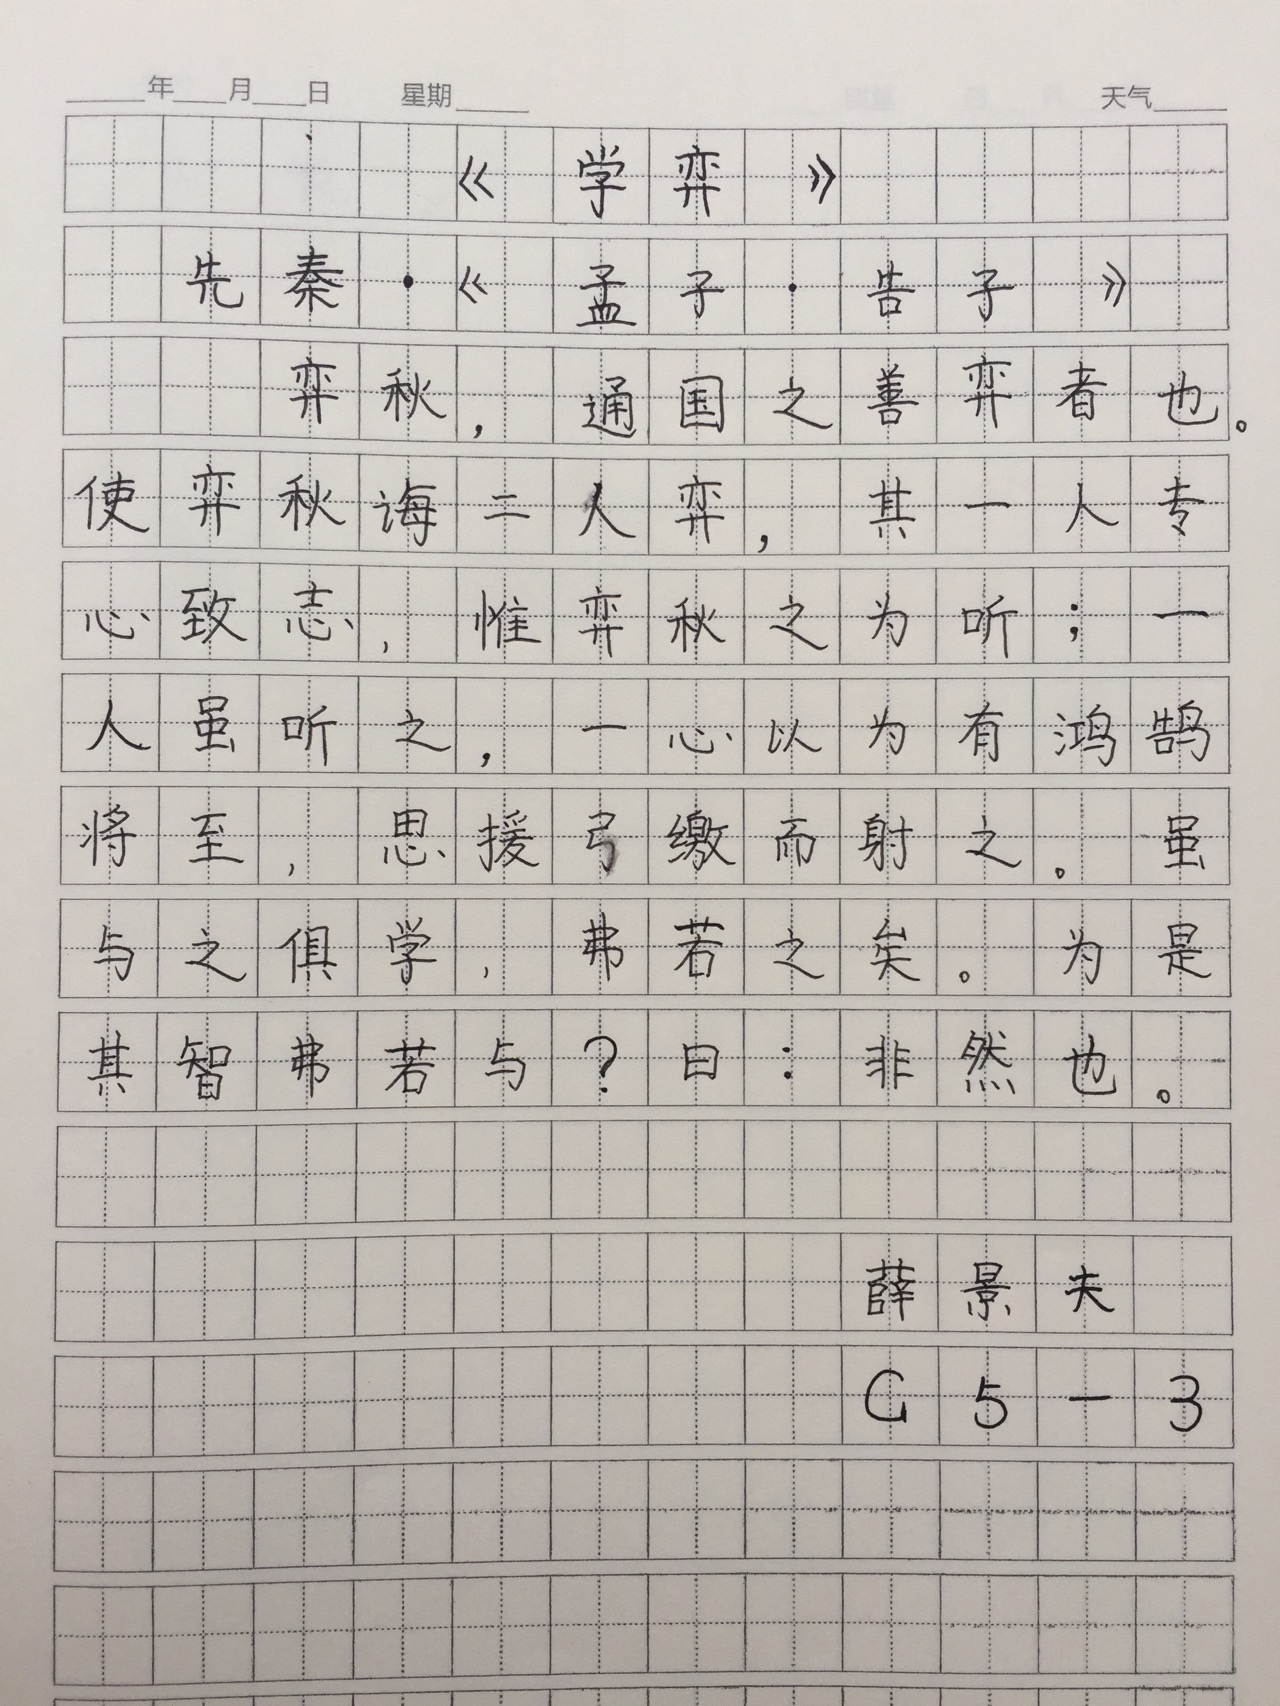 ____年____月____日 星期____ 天气____
《学弈》
先秦·《孟子·告子》
弈秋，通国之善弈者也。
使弈秋诲二人弈，其一人专
心致志，惟弈秋之为听；一
人虽听之，一心以为有鸿鹄
将至，思援弓缴而射之。虽
与之俱学，弗若之矣。为是
其智弗若与？曰：非然也。
薛景夫
G5-3